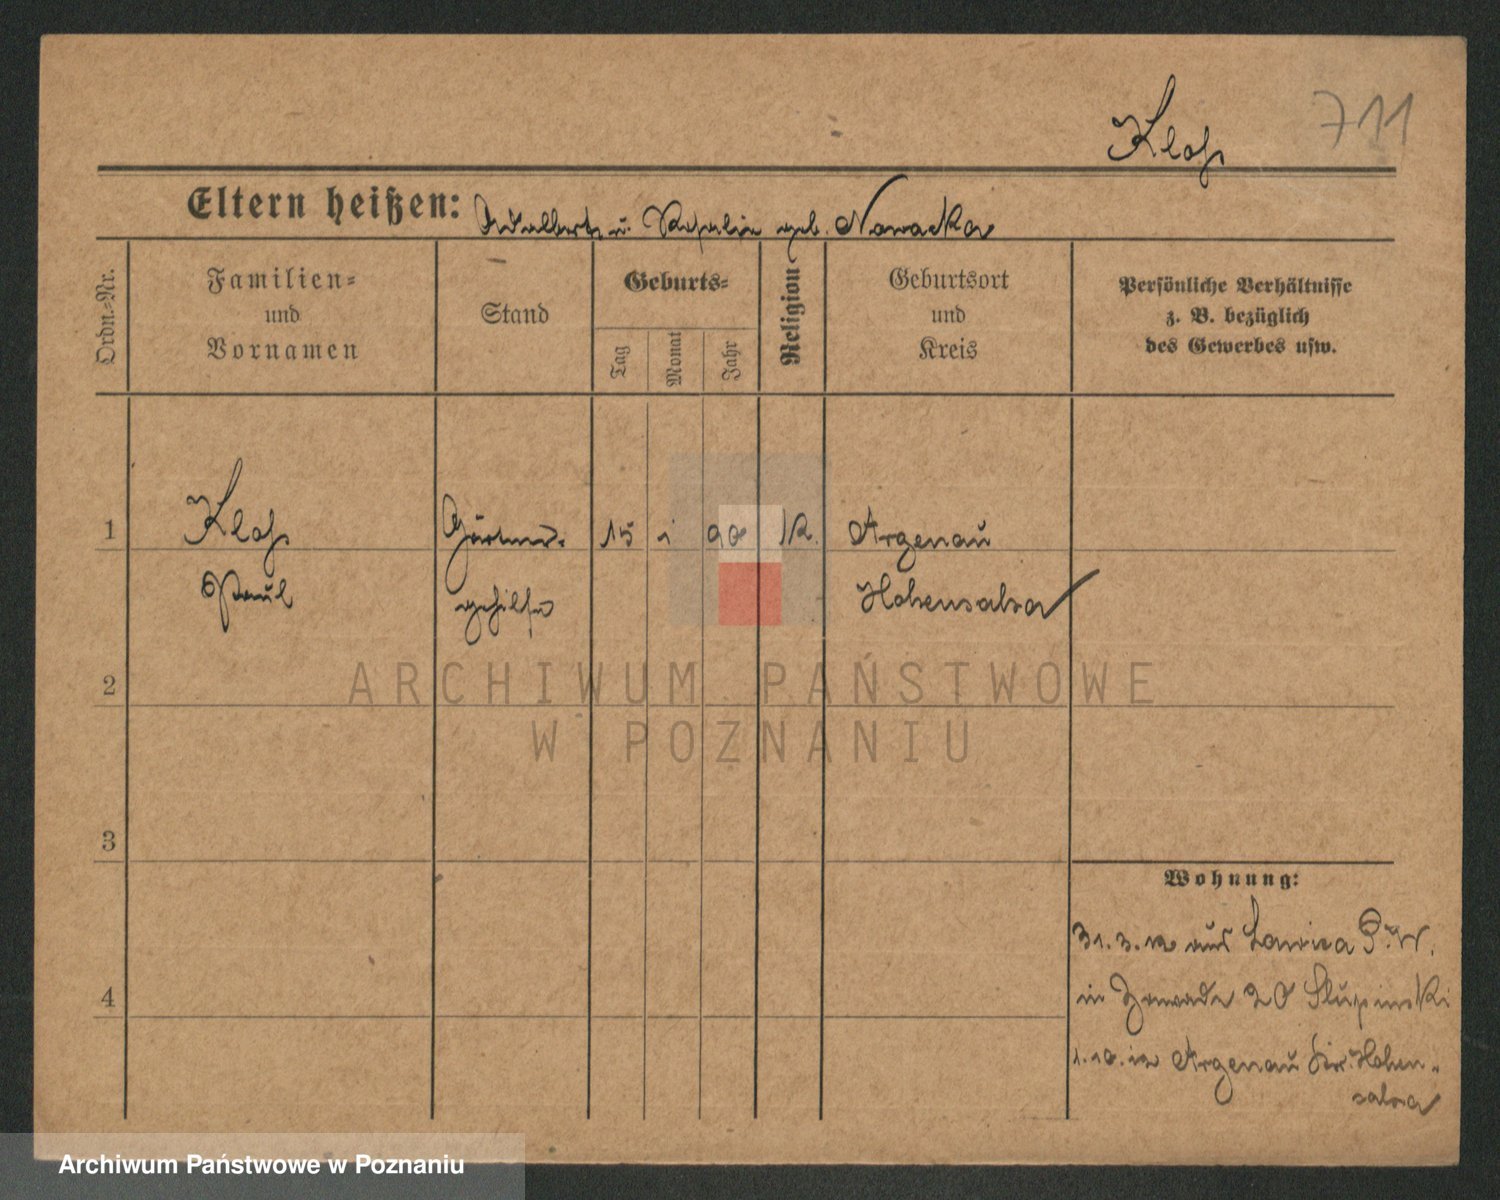 711
Kloß
Eltern heißen: Adalbert u. Rosalie geb. Nowacka
Ordn.-Nr.
Familien-
und
Vornamen
Stand
Geburts-
Tag
Monat
Jahr
Religion
Geburtsort
und
Kreis
Persönliche Verhältnisse
z. B. bezüglich
des Gewerbes usw.
1 Kloß Gärtner- 15 1 90 K. Argenau
Paul gehilfe Hohensalza
2
3
4
Wohnung:
31.3.12 aus Lawica P.W.
in Zawade 20 Slupinski
1.10.12 Argenau Kr. Hohen-
salza
ARCHIWUM PAŃSTWOWE
W POZNANIU
Archiwum Państwowe w Poznaniu